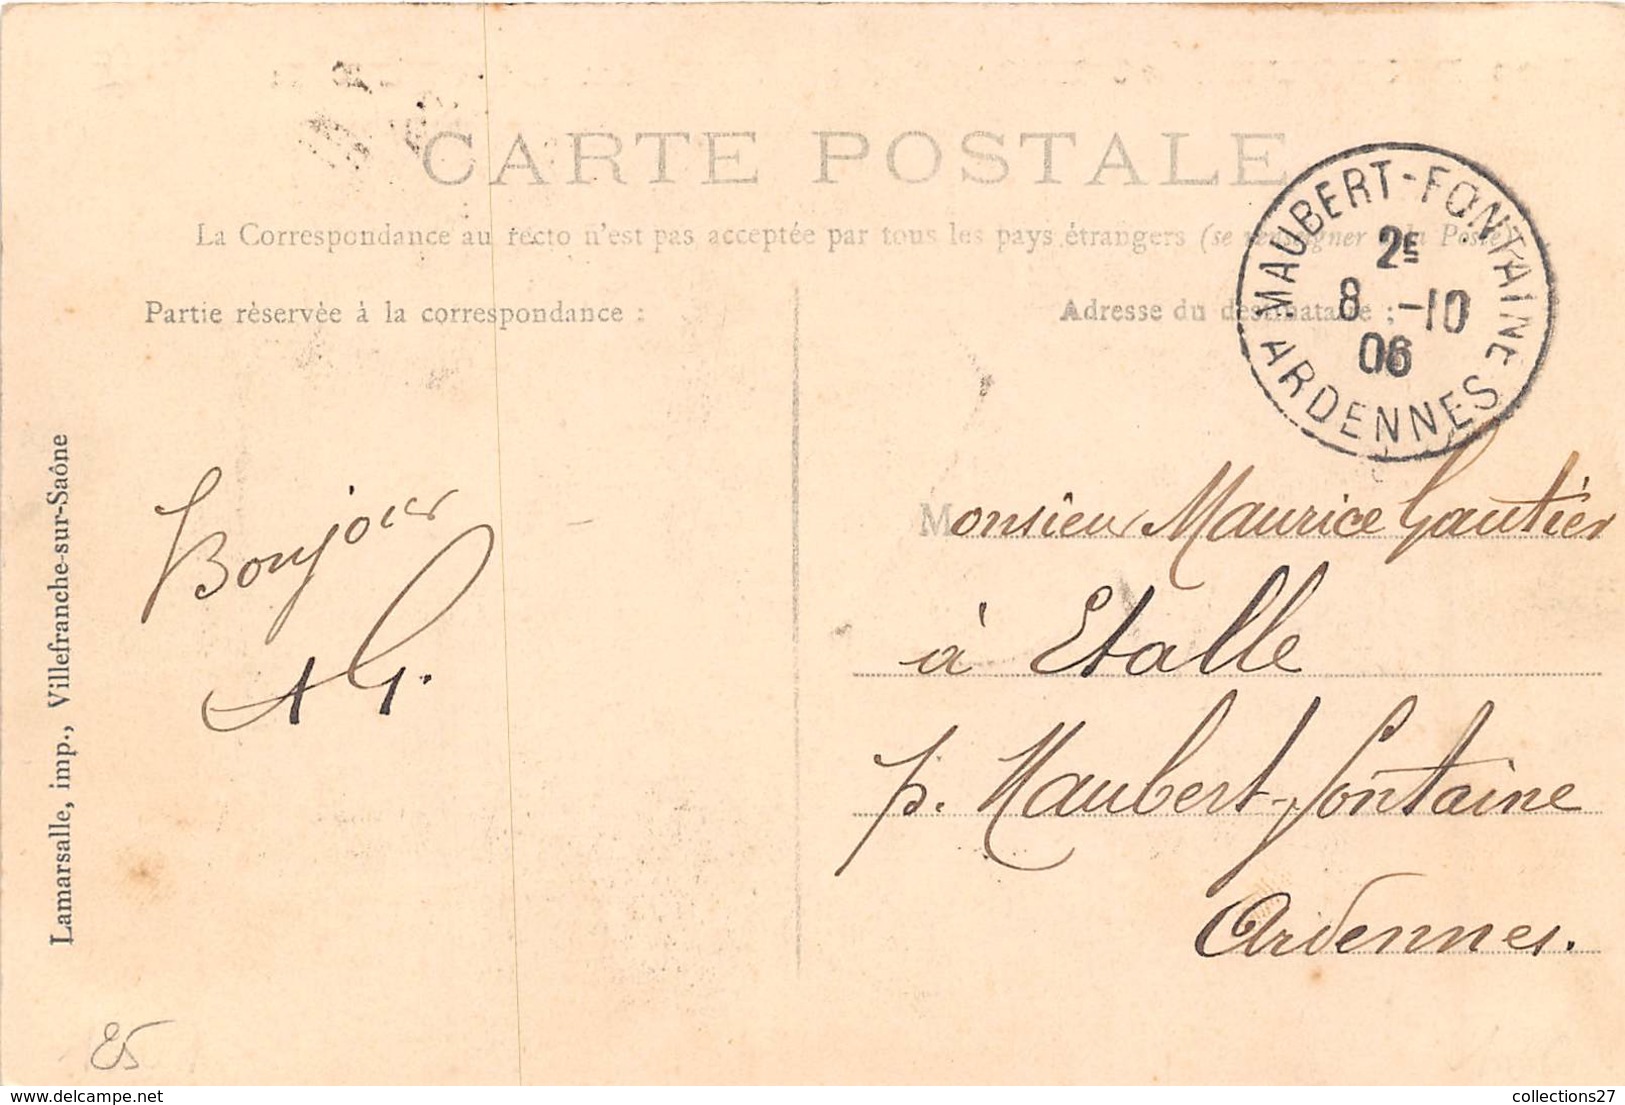 CARTE POSTALE
La Correspondance au recto n'est pas acceptée par tous les pays étrangers (se renseigner à la Poste)
Partie réservée à la correspondance :
Adresse du destinataire :
MAUBERT-FONTAINE
2E
8 -10
06
ARDENNES
Bonjour
AG.
Monsieur Maurice Gautier
à Etalle
p. Maubert-fontaine
Ardennes.
Lamarsalle, imp., Villefranche-sur-Saône
85
delcampe.net
collections27